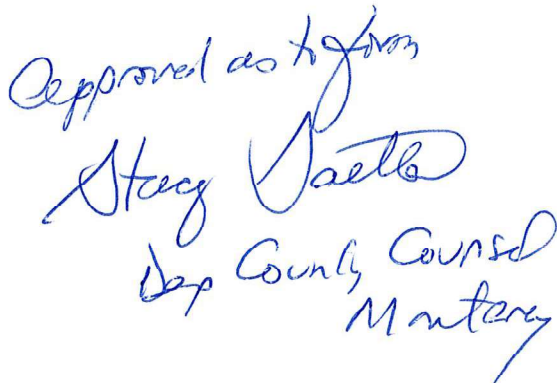 Approved as to form
Stacy Saetta
Dep County Counsel
Monterey